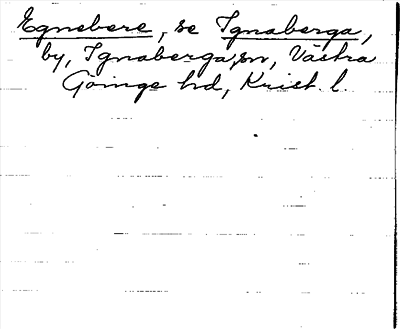 Egnebere, se Ignaberga,
by, Ignaberga sn, Västra
Göinge hd, Krist. l.